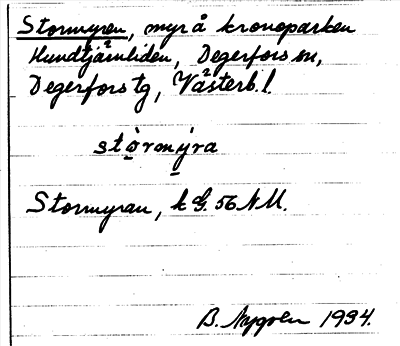 Stormyren, myr å kronoparken
Hundtjärnliden, Degerfors sn,
Degerfors tg, Västerb. l.
stòrmýra
Stormyran, k G. 56 NM.
B. Nygren 1934.